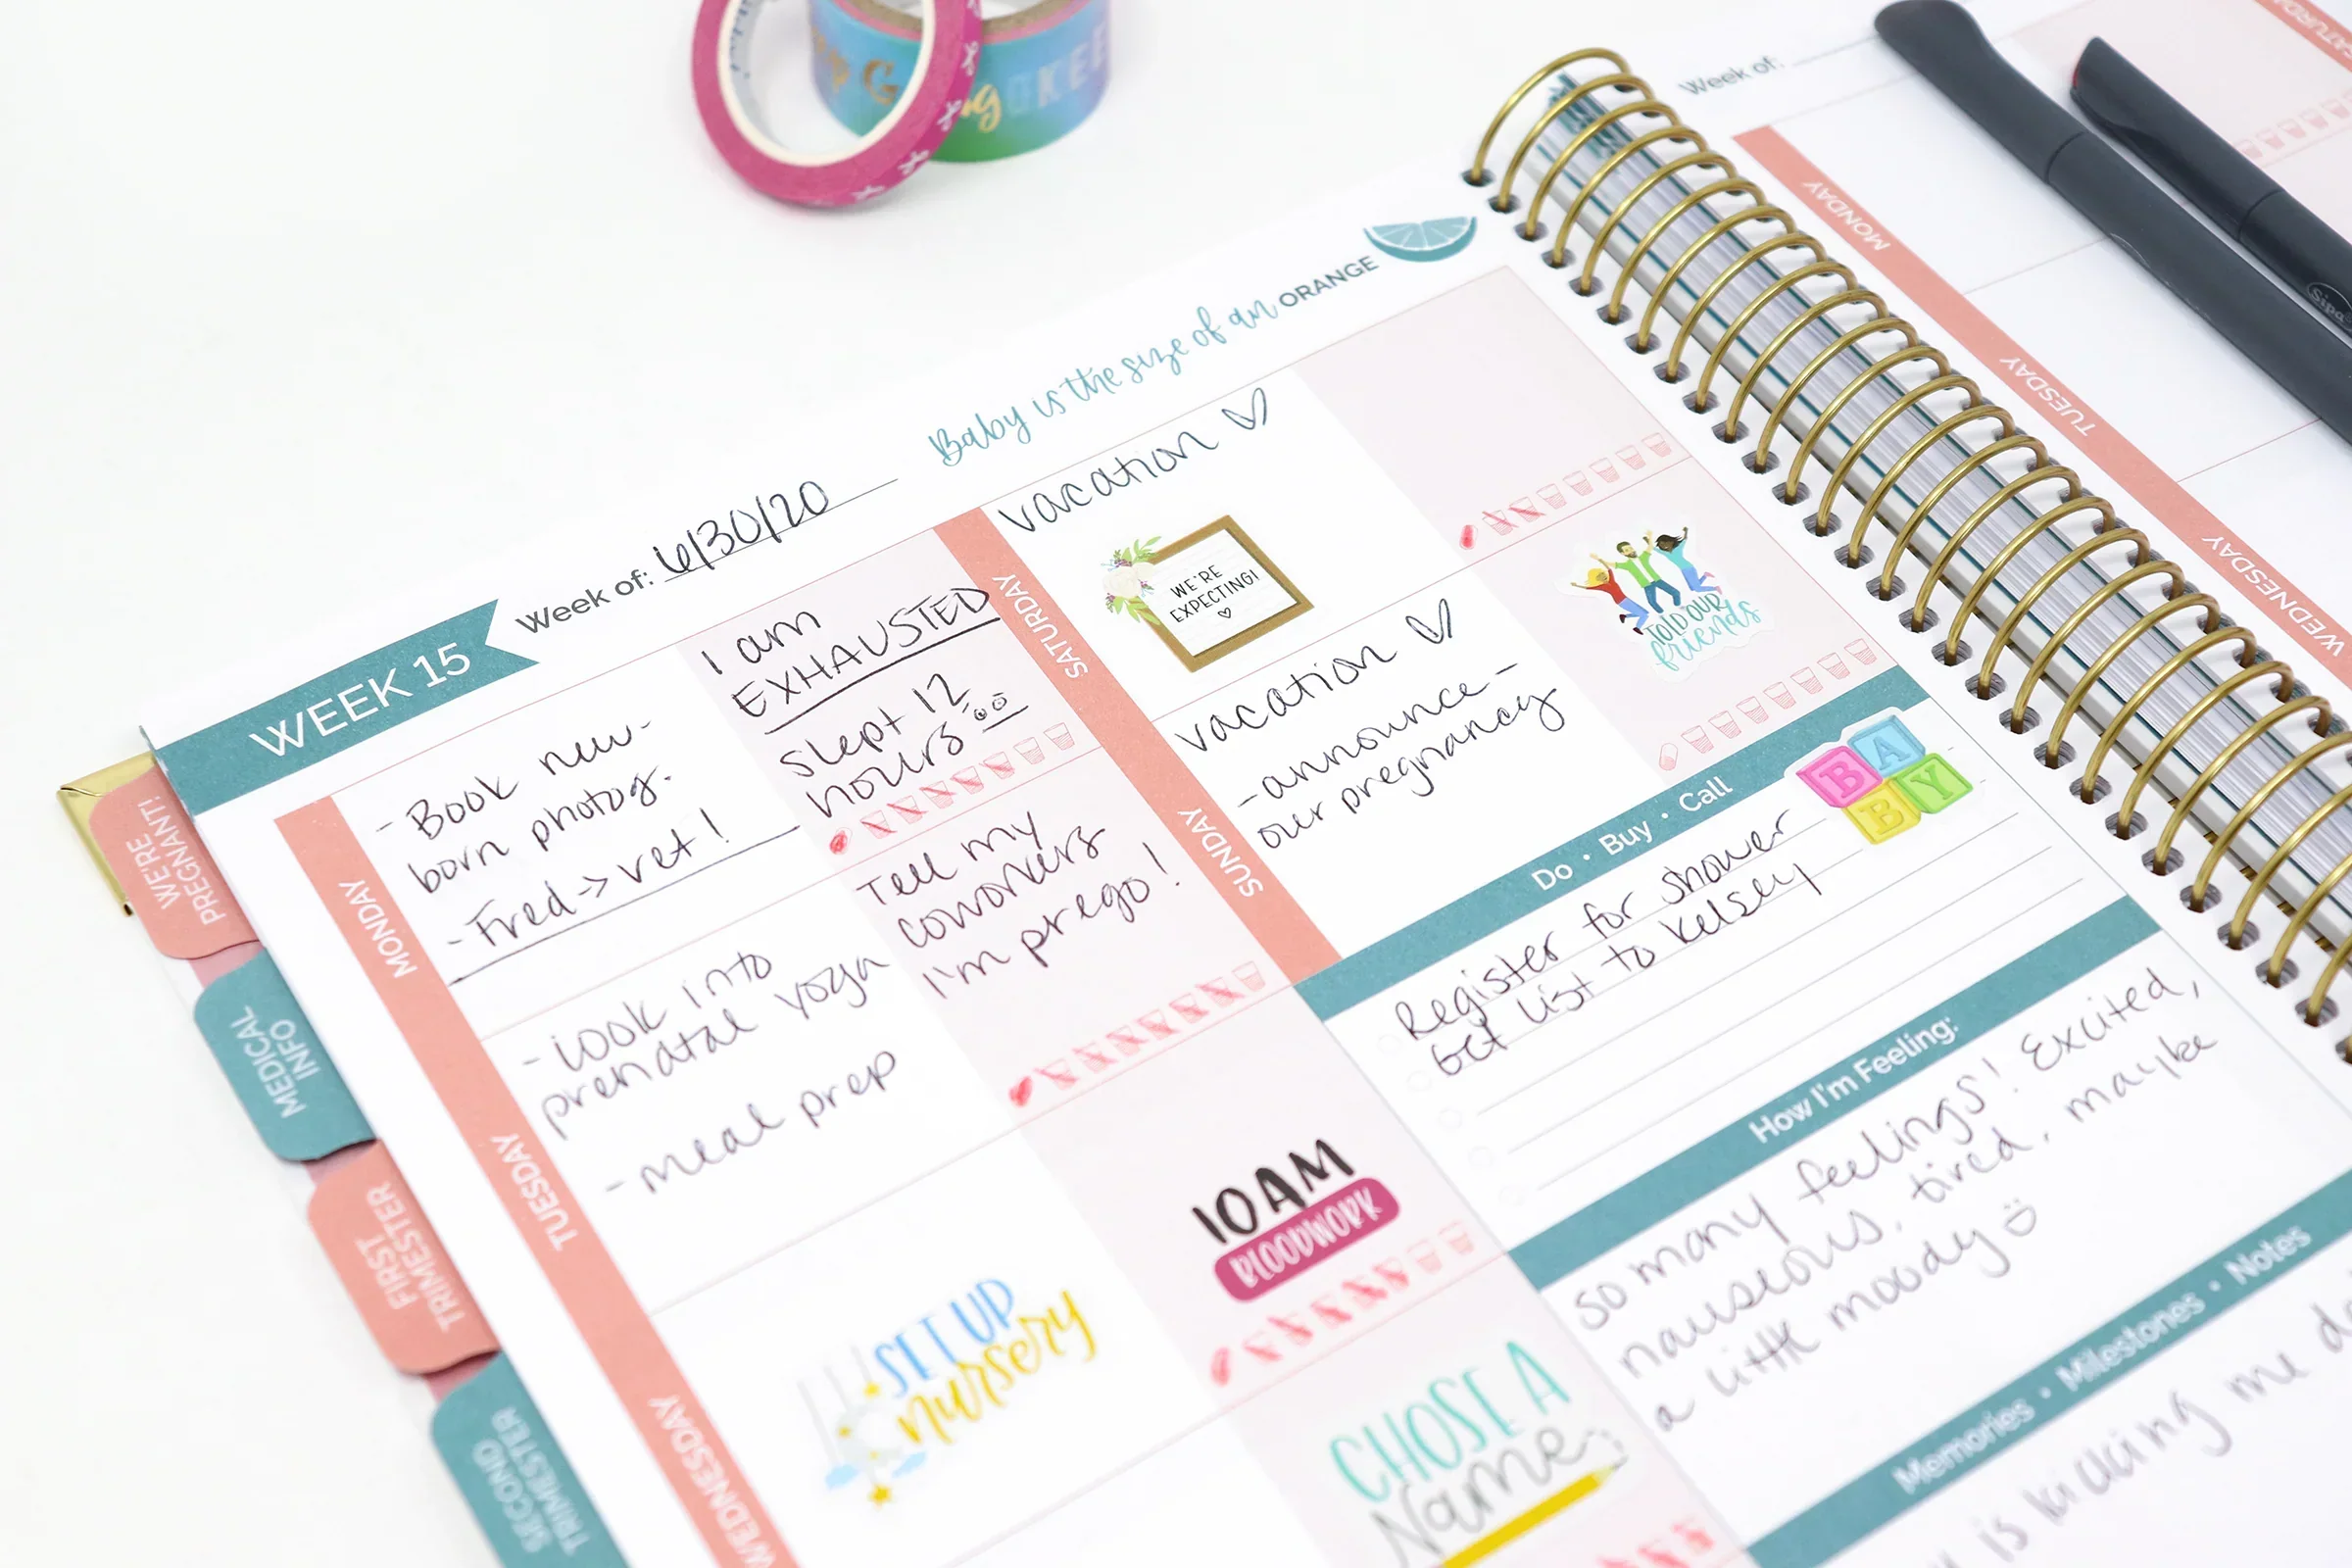 WEEK 15
Week of: 6/30/20
Baby is the size of an ORANGE
MONDAY
- Book new-
born photog.
- Fred -> vet!
I am
EXHAUSTED
slept 12
hours
TUESDAY
- look into
prenatal yoga
- meal prep
Tell my
coworkers
I'm prego!
WEDNESDAY
SET UP
nursery
10AM
BLOODWORK
CHOSE A
Name
SATURDAY
vacation
WE'RE
EXPECTING!
SUNDAY
vacation
- announce -
our pregnancy
TOLD OUR
friends
Do • Buy • Call
BABY
Register for shower
Get list to Kelsey
How I'm Feeling:
So many feelings! Excited,
nauseous, tired, maybe
a little moody
Memories • Milestones • Notes
is kicking me
WE'RE
PREGNANT!
MEDICAL
INFO
FIRST
TRIMESTER
SECOND
TRIMESTER
Week of:
MONDAY
TUESDAY
WEDNESDAY
Sipa